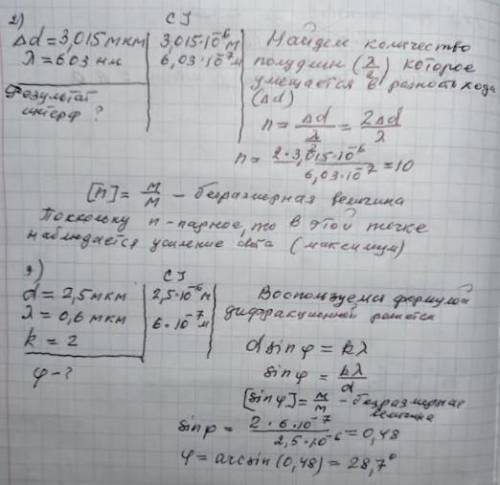 2)
СІ
Δd = 3,015 мкм | 3,015·10⁻⁶ м
λ = 603 нм | 6,03·10⁻⁷ м
Результат
интерф ?
Найдем количество
полудлин (λ/2) которое
умещается в разность хода
(Δd)
n = Δd/(λ/2) = 2Δd/λ
n = 2·3,015·10⁻⁶/6,03·10⁻⁷ = 10
[n] = м/м – безразмерная величина
Поскольку n - парное, то в этой точке
наблюдается усиление света (максимум)
3)
СІ
d = 2,5 мкм | 2,5·10⁻⁶ м
λ = 0,6 мкм | 6·10⁻⁷ м
k = 2
φ - ?
Воспользуемся формулой
дифракционной решетки
d sin φ = kλ
sin φ = kλ/d
[sin φ] = м/м – безразмерная
величина
sin φ = 2·6·10⁻⁷/2,5·10⁻⁶ = 0,48
φ = arcsin (0,48) = 28,7°